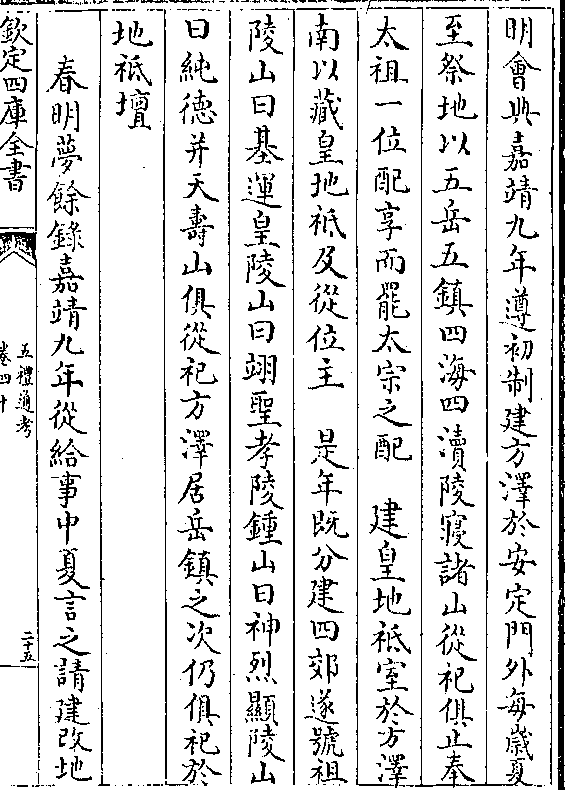 明會典嘉靖九年遵初制建方澤於安定門外每歲夏
至祭地以五岳五鎮四海四瀆陵寢諸山從祀俱止奉
太祖一位配享而罷太宗之配　建皇地祇室於方澤
南以藏皇地祇及從位主　是年既分建四郊遂號祖
陵山曰基運皇陵山曰翊聖孝陵鍾山曰神烈顯陵山
曰純德并天壽山俱從祀方澤居岳鎮之次仍俱祀於
地祇壇
春明夢餘錄嘉靖九年從給事中夏言之請建改地
欽定四庫全書
五禮通考
卷四十
二十五